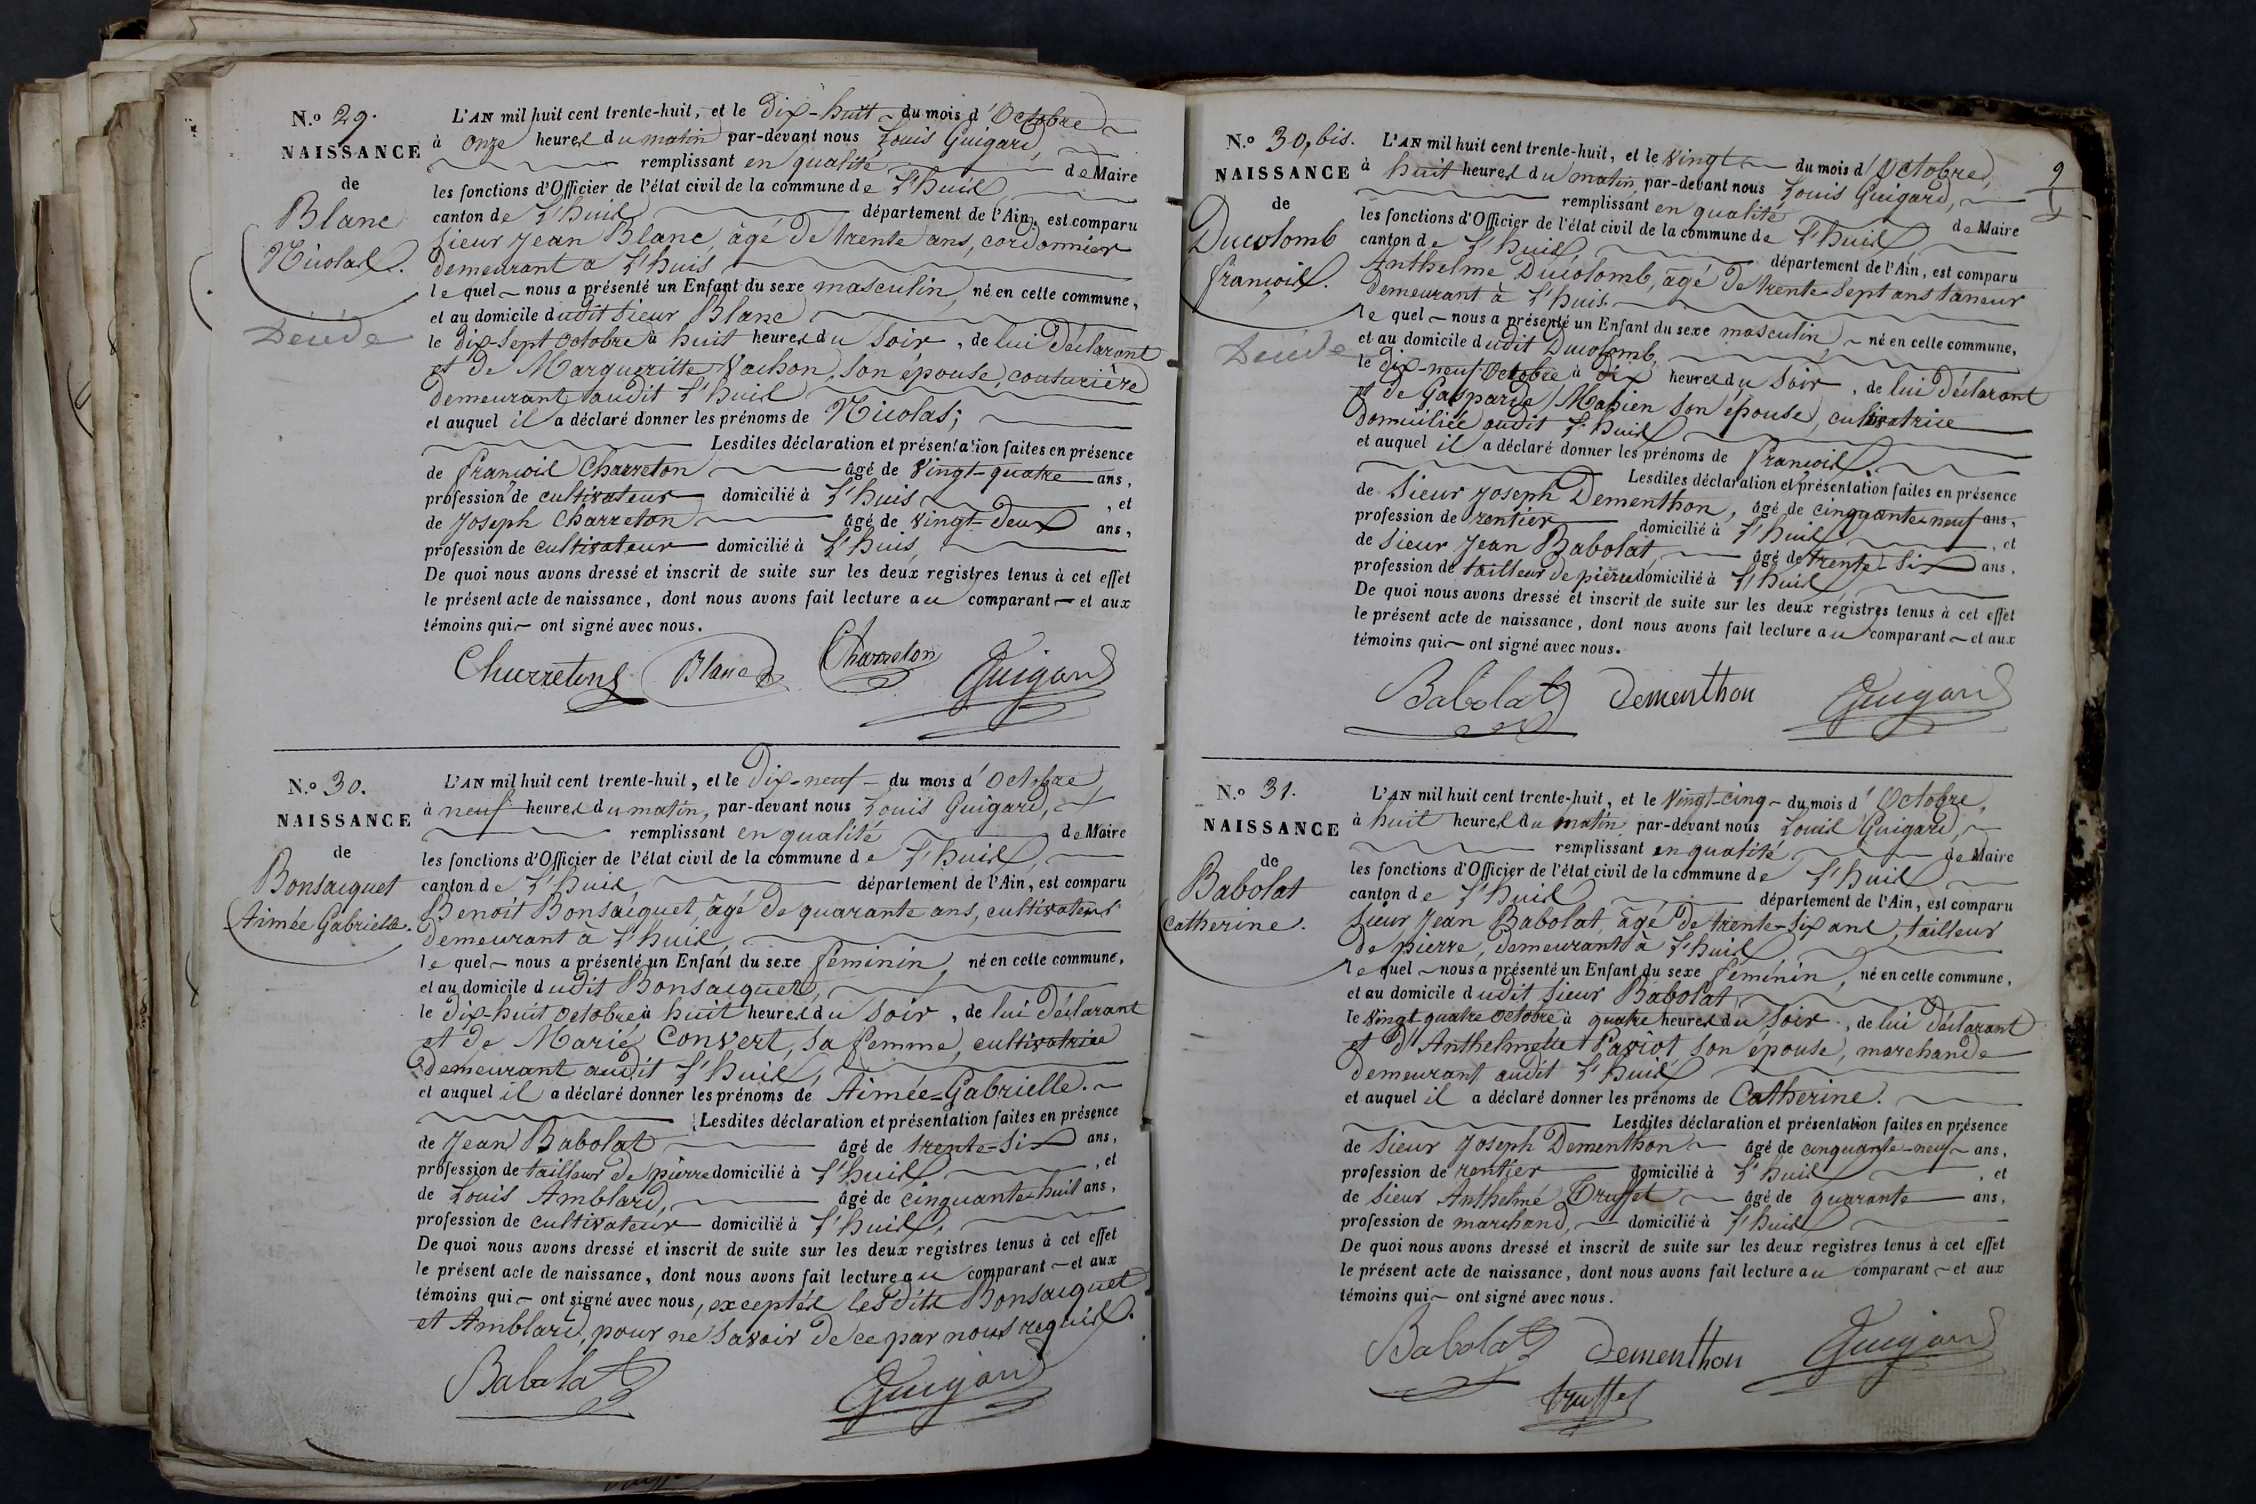 N.o 29.
NAISSANCE
de
Blanc
Nicolas.
Décédé
L'AN mil huit cent trente-huit, et le dix-huit du mois d'Octobre
à onze heures du matin par-devant nous Louis Guigard,
remplissant en qualité de Maire
les fonctions d'Officier de l'état civil de la commune de L'huis
canton de L'huis département de l'Ain, est comparu
sieur Jean Blanc, âgé de trente ans, cordonnier
demeurant a L'huis
lequel nous a présenté un Enfant du sexe masculin, né en cette commune,
et au domicile dudit sieur Blanc
le dix-sept octobre à huit heures du soir, de lui déclarant
et de Margueritte Vachon, son épouse, couturière
demeurant audit L'huis
et auquel il a déclaré donner les prénoms de Nicolas;
Lesdites déclaration et présentation faites en présence
de françois Charreton âgé de vingt-quatre ans,
profession de cultivateur domicilié à L'huis, et
de Joseph Charreton âgé de vingt-deux ans,
profession de cultivateur domicilié à L'huis,
De quoi nous avons dressé et inscrit de suite sur les deux registres tenus à cet effet
le présent acte de naissance, dont nous avons fait lecture au comparant et aux
témoins qui ont signé avec nous.
Charreton Blanc Charreton Guigard
N.o 30.
NAISSANCE
de
Bonsacquet
Aimée Gabrielle.
L'AN mil huit cent trente-huit, et le dix-neuf du mois d'Octobre
à neuf heures du matin, par-devant nous Louis Guigard,
remplissant en qualité de Maire
les fonctions d'Officier de l'état civil de la commune de L'huis,
canton de L'huis, département de l'Ain, est comparu
Benoit Bonsacquet, âgé de quarante ans, cultivateur
demeurant à L'huis,
lequel nous a présenté un Enfant du sexe féminin, né en cette commune,
et au domicile dudit Bonsacquet,
le dix-huit octobre à huit heures du soir, de lui déclarant
et de Marie Convert, sa femme, cultivatrice
demeurant audit L'huis,
et auquel il a déclaré donner les prénoms de Aimée=Gabrielle.
Lesdites déclaration et présentation faites en présence
de Jean Babolat âgé de trente-six ans,
profession de tailleur de pierre domicilié à L'huis, et
de Louis Amblard, âgé de cinquante-huit ans,
profession de cultivateur domicilié à L'huis.
De quoi nous avons dressé et inscrit de suite sur les deux registres tenus à cet effet
le présent acte de naissance, dont nous avons fait lecture au comparant et aux
témoins qui ont signé avec nous, exceptés lesdits Bonsacquet
et Amblard, pour ne savoir de ce par nous requis.
Babolat Guigard
9
N.o 30, bis.
NAISSANCE
de
Ducolomb
françois.
Décédé
L'AN mil huit cent trente-huit, et le vingt du mois d'Octobre,
à huit heures du matin, par-devant nous Louis Guigard,
remplissant en qualité de Maire
les fonctions d'Officier de l'état civil de la commune de L'huis,
canton de L'huis, département de l'Ain, est comparu
Anthelme Ducolomb, âgé de trente-sept ans taneur
demeurant à L'huis.
lequel nous a présenté un Enfant du sexe masculin, né en cette commune,
et au domicile dudit Ducolomb,
le dix-neuf octobre à dix heures du soir, de lui déclarant
et de Gasparde Mahien son épouse, cultivatrice
domiciliée audit L'huis
et auquel il a déclaré donner les prénoms de françois.
Lesdites déclaration et présentation faites en présence
de sieur Joseph Dementhon, âgé de cinquante-neuf ans,
profession de rentier domicilié à L'huis, et
de sieur Jean Babolat, âgé de trente-six ans,
profession de tailleur de pierre domicilié à L'huis
De quoi nous avons dressé et inscrit de suite sur les deux régistres tenus à cet effet
le présent acte de naissance, dont nous avons fait lecture au comparant et aux
témoins qui ont signé avec nous.
Babolat Dementhon Guigard
N.o 31.
NAISSANCE
de
Babolat
Catherine.
L'AN mil huit cent trente-huit, et le vingt-cinq du mois d'Octobre,
à huit heures du matin, par-devant nous Louis Guigard,
remplissant en qualité de Maire
les fonctions d'Officier de l'état civil de la commune de L'huis
canton de L'huis département de l'Ain, est comparu
sieur Jean Babolat, âgé de trente-six ans, tailleur
de pierre, demeurant à L'huis
lequel nous a présenté un Enfant du sexe féminin, né en cette commune,
et au domicile dudit sieur Babolat,
le vingt quatre octobre à quatre heures du soir, de lui déclarant
et d'Anthelmette Paviot son épouse, marchande
demeurant audit L'huis
et auquel il a déclaré donner les prénoms de Catherine.
Lesdites déclaration et présentation faites en présence
de sieur Joseph Dementhon âgé de cinquante-neuf ans,
profession de rentier domicilié à L'huis, et
de sieur Anthelme Truffet âgé de quarante ans,
profession de marchand, domicilié à L'huis
De quoi nous avons dressé et inscrit de suite sur les deux registres tenus à cet effet
le présent acte de naissance, dont nous avons fait lecture au comparant et aux
témoins qui ont signé avec nous.
Babolat Dementhon Guigard
Truffet